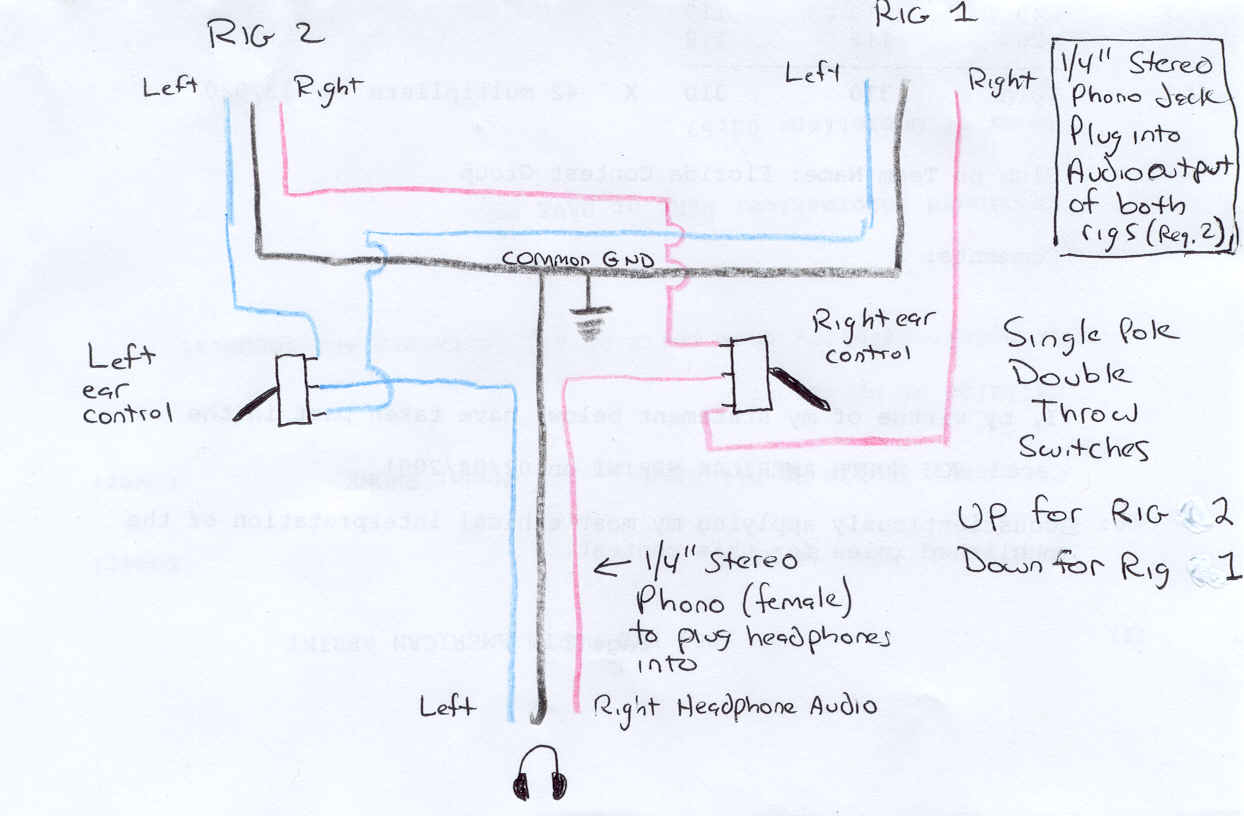 RIG 2
RIG 1
Left
Right
Left
Right
1/4" Stereo
Phono Jack
Plug into
Audio output
of both
rigs (Req. 2)
COMMON GND
Left
ear
control
Right ear
control
Single Pole
Double
Throw
Switches
UP for RIG 2
Down for Rig 1
← 1/4" Stereo
Phono (female)
to plug headphones
into
Left
Right Headphone Audio